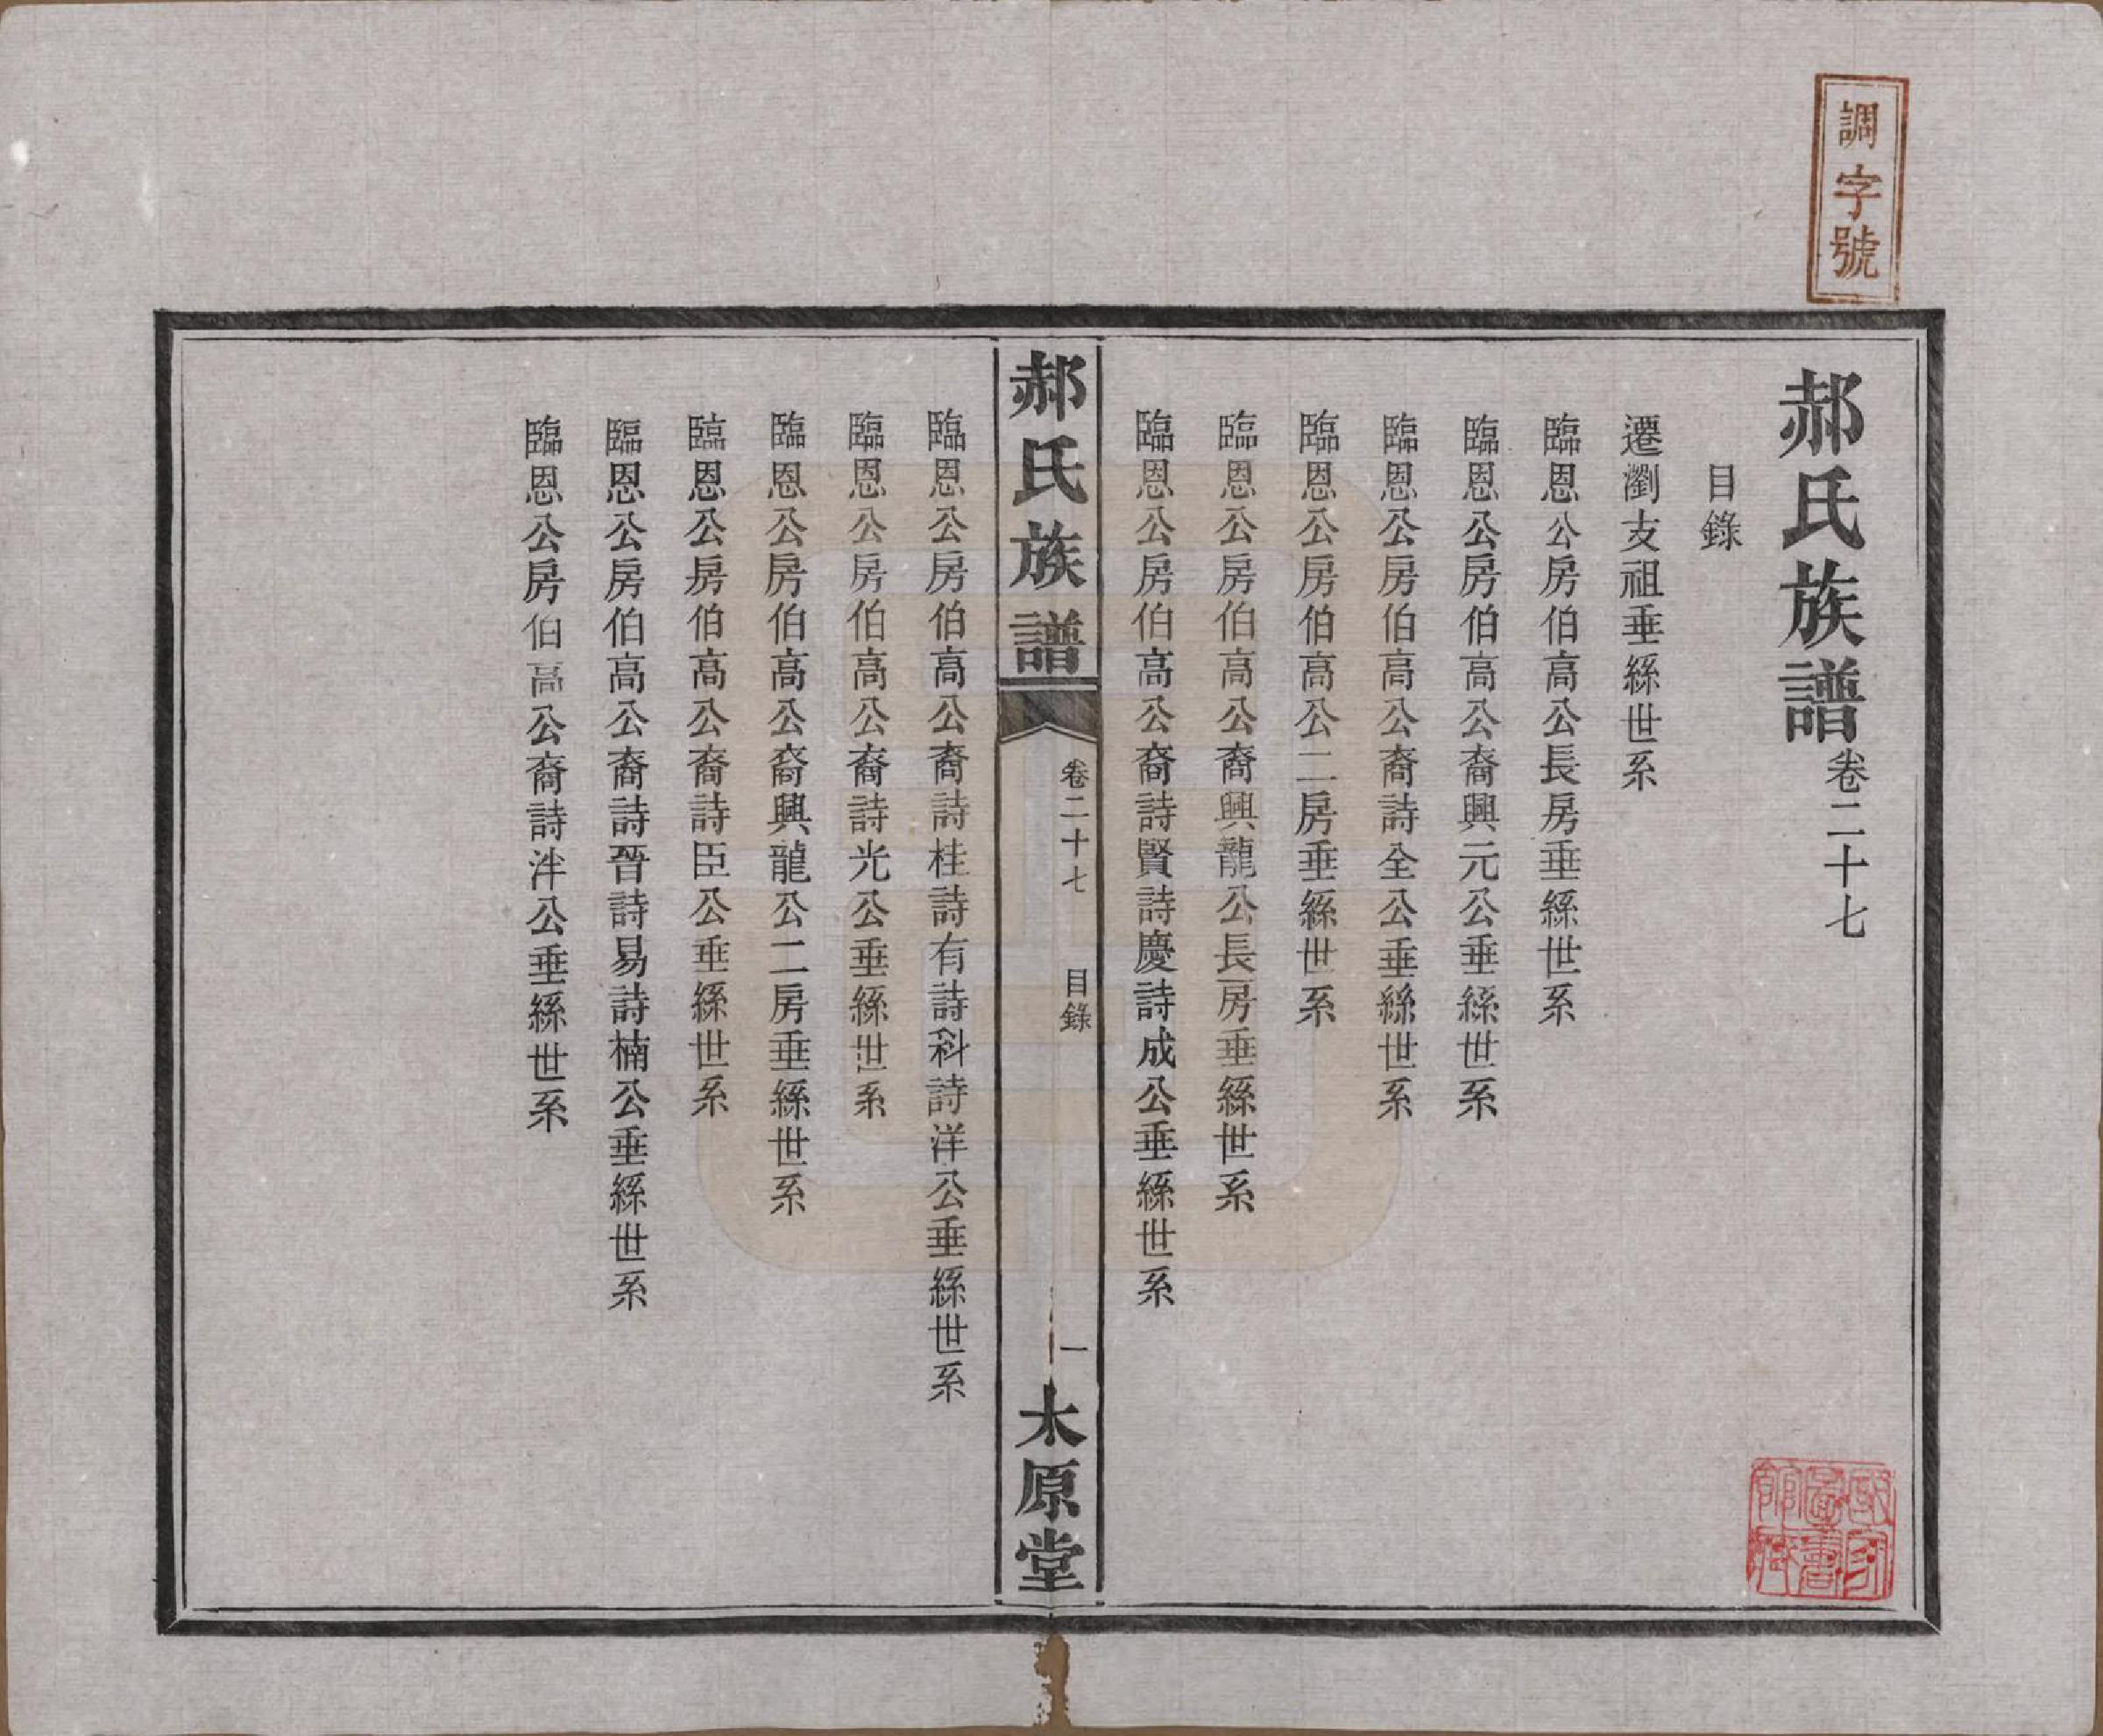 調字號
郝氏族譜卷二十七
目錄
遷瀏支祖垂絲世系
臨恩公房伯高公長房垂絲世系
臨恩公房伯高公裔興元公垂絲世系
臨恩公房伯高公裔詩全公垂絲世系
臨恩公房伯高公二房垂絲世系
臨恩公房伯高公裔興龍公長房垂絲世系
臨恩公房伯高公裔詩賢詩慶詩成公垂絲世系
郝氏族譜
卷二十七
目錄
一
太原堂
臨恩公房伯高公裔詩桂詩有詩科詩洋公垂絲世系
臨恩公房伯高公裔詩光公垂絲世系
臨恩公房伯高公裔興龍公二房垂絲世系
臨恩公房伯高公裔詩臣公垂絲世系
臨恩公房伯高公裔詩晉詩易詩楠公垂絲世系
臨恩公房伯高公裔詩泮公垂絲世系
國家圖書館藏